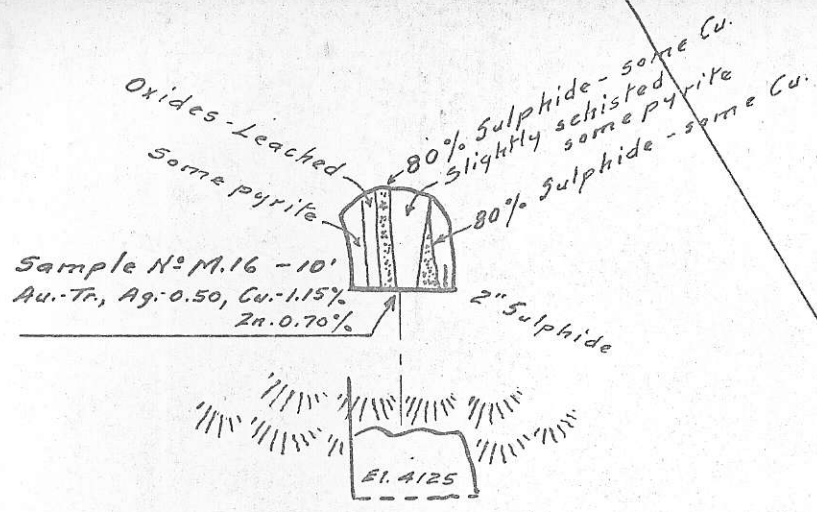 Oxides-Leached
Some pyrite
80% Sulphide - some Cu.
Slightly schisted
some pyrite
80% Sulphide - some Cu.
Sample Nº M.16 - 10'
Au.-Tr., Ag.-0.50, Cu.-1.15%
Zn. 0.70%
2" Sulphide
El. 4125